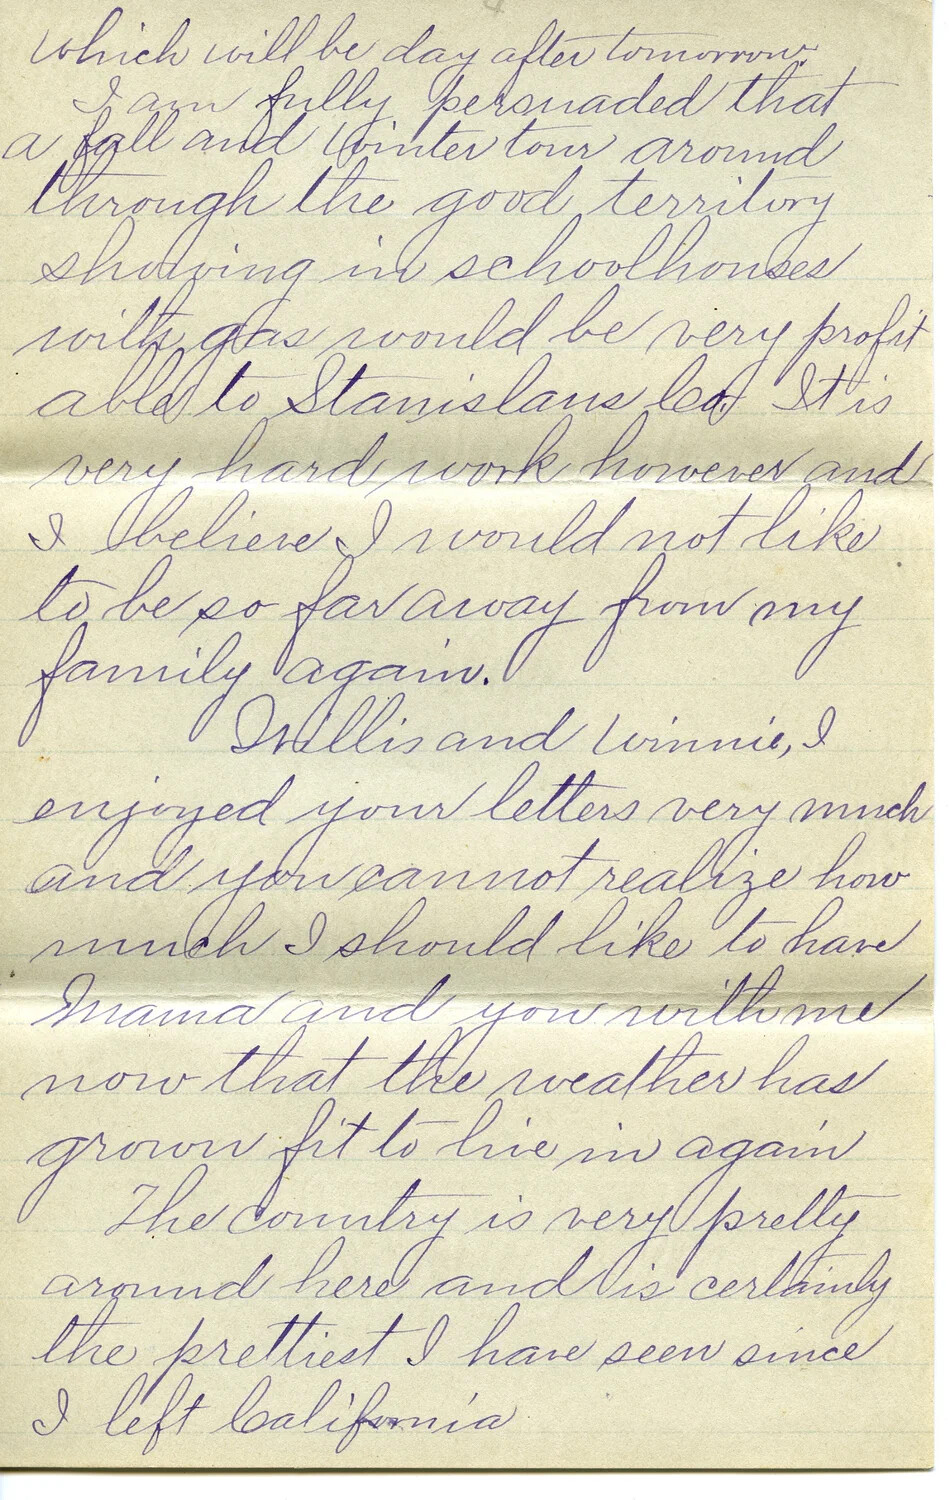 which will be day after tomorrow.
I am fully persuaded that
a fall and Winter tour around
through the good territory
showing in schoolhouses
with gas would be very profit
able to Stanislaus Co. It is
very hard work however and
I believe I would not like
to be so far away from my
family again.
Willis and Winnie, I
enjoyed your letters very much
and you cannot realize how
much I should like to have
Mama and you with me
now that the weather has
grown fit to live in again
The country is very pretty
around here and is certainly
the prettiest I have seen since
I left California